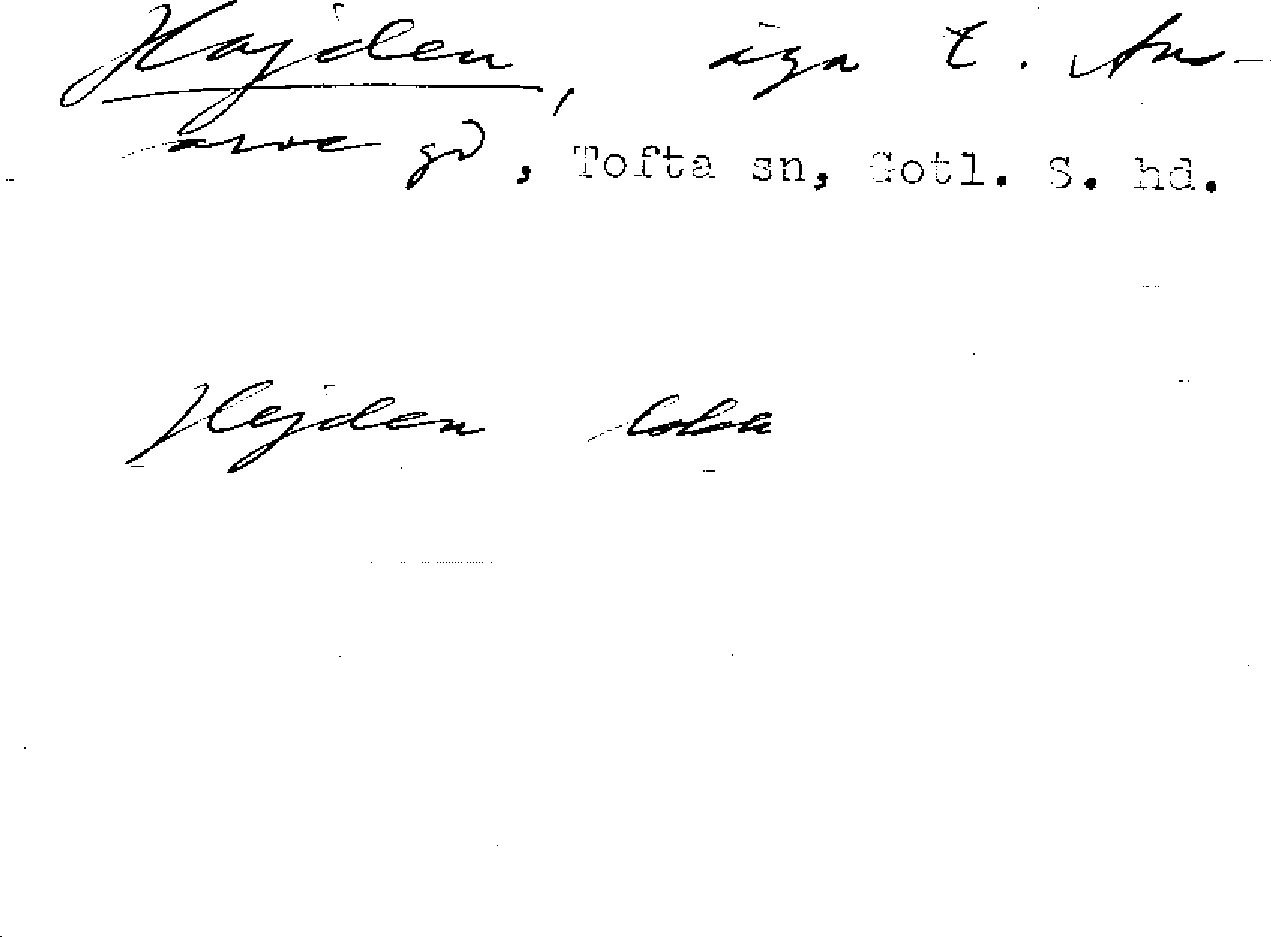 Hajden, äga t. An-
arve gd, Tofta sn, Gotl. S. hd.
Hejden